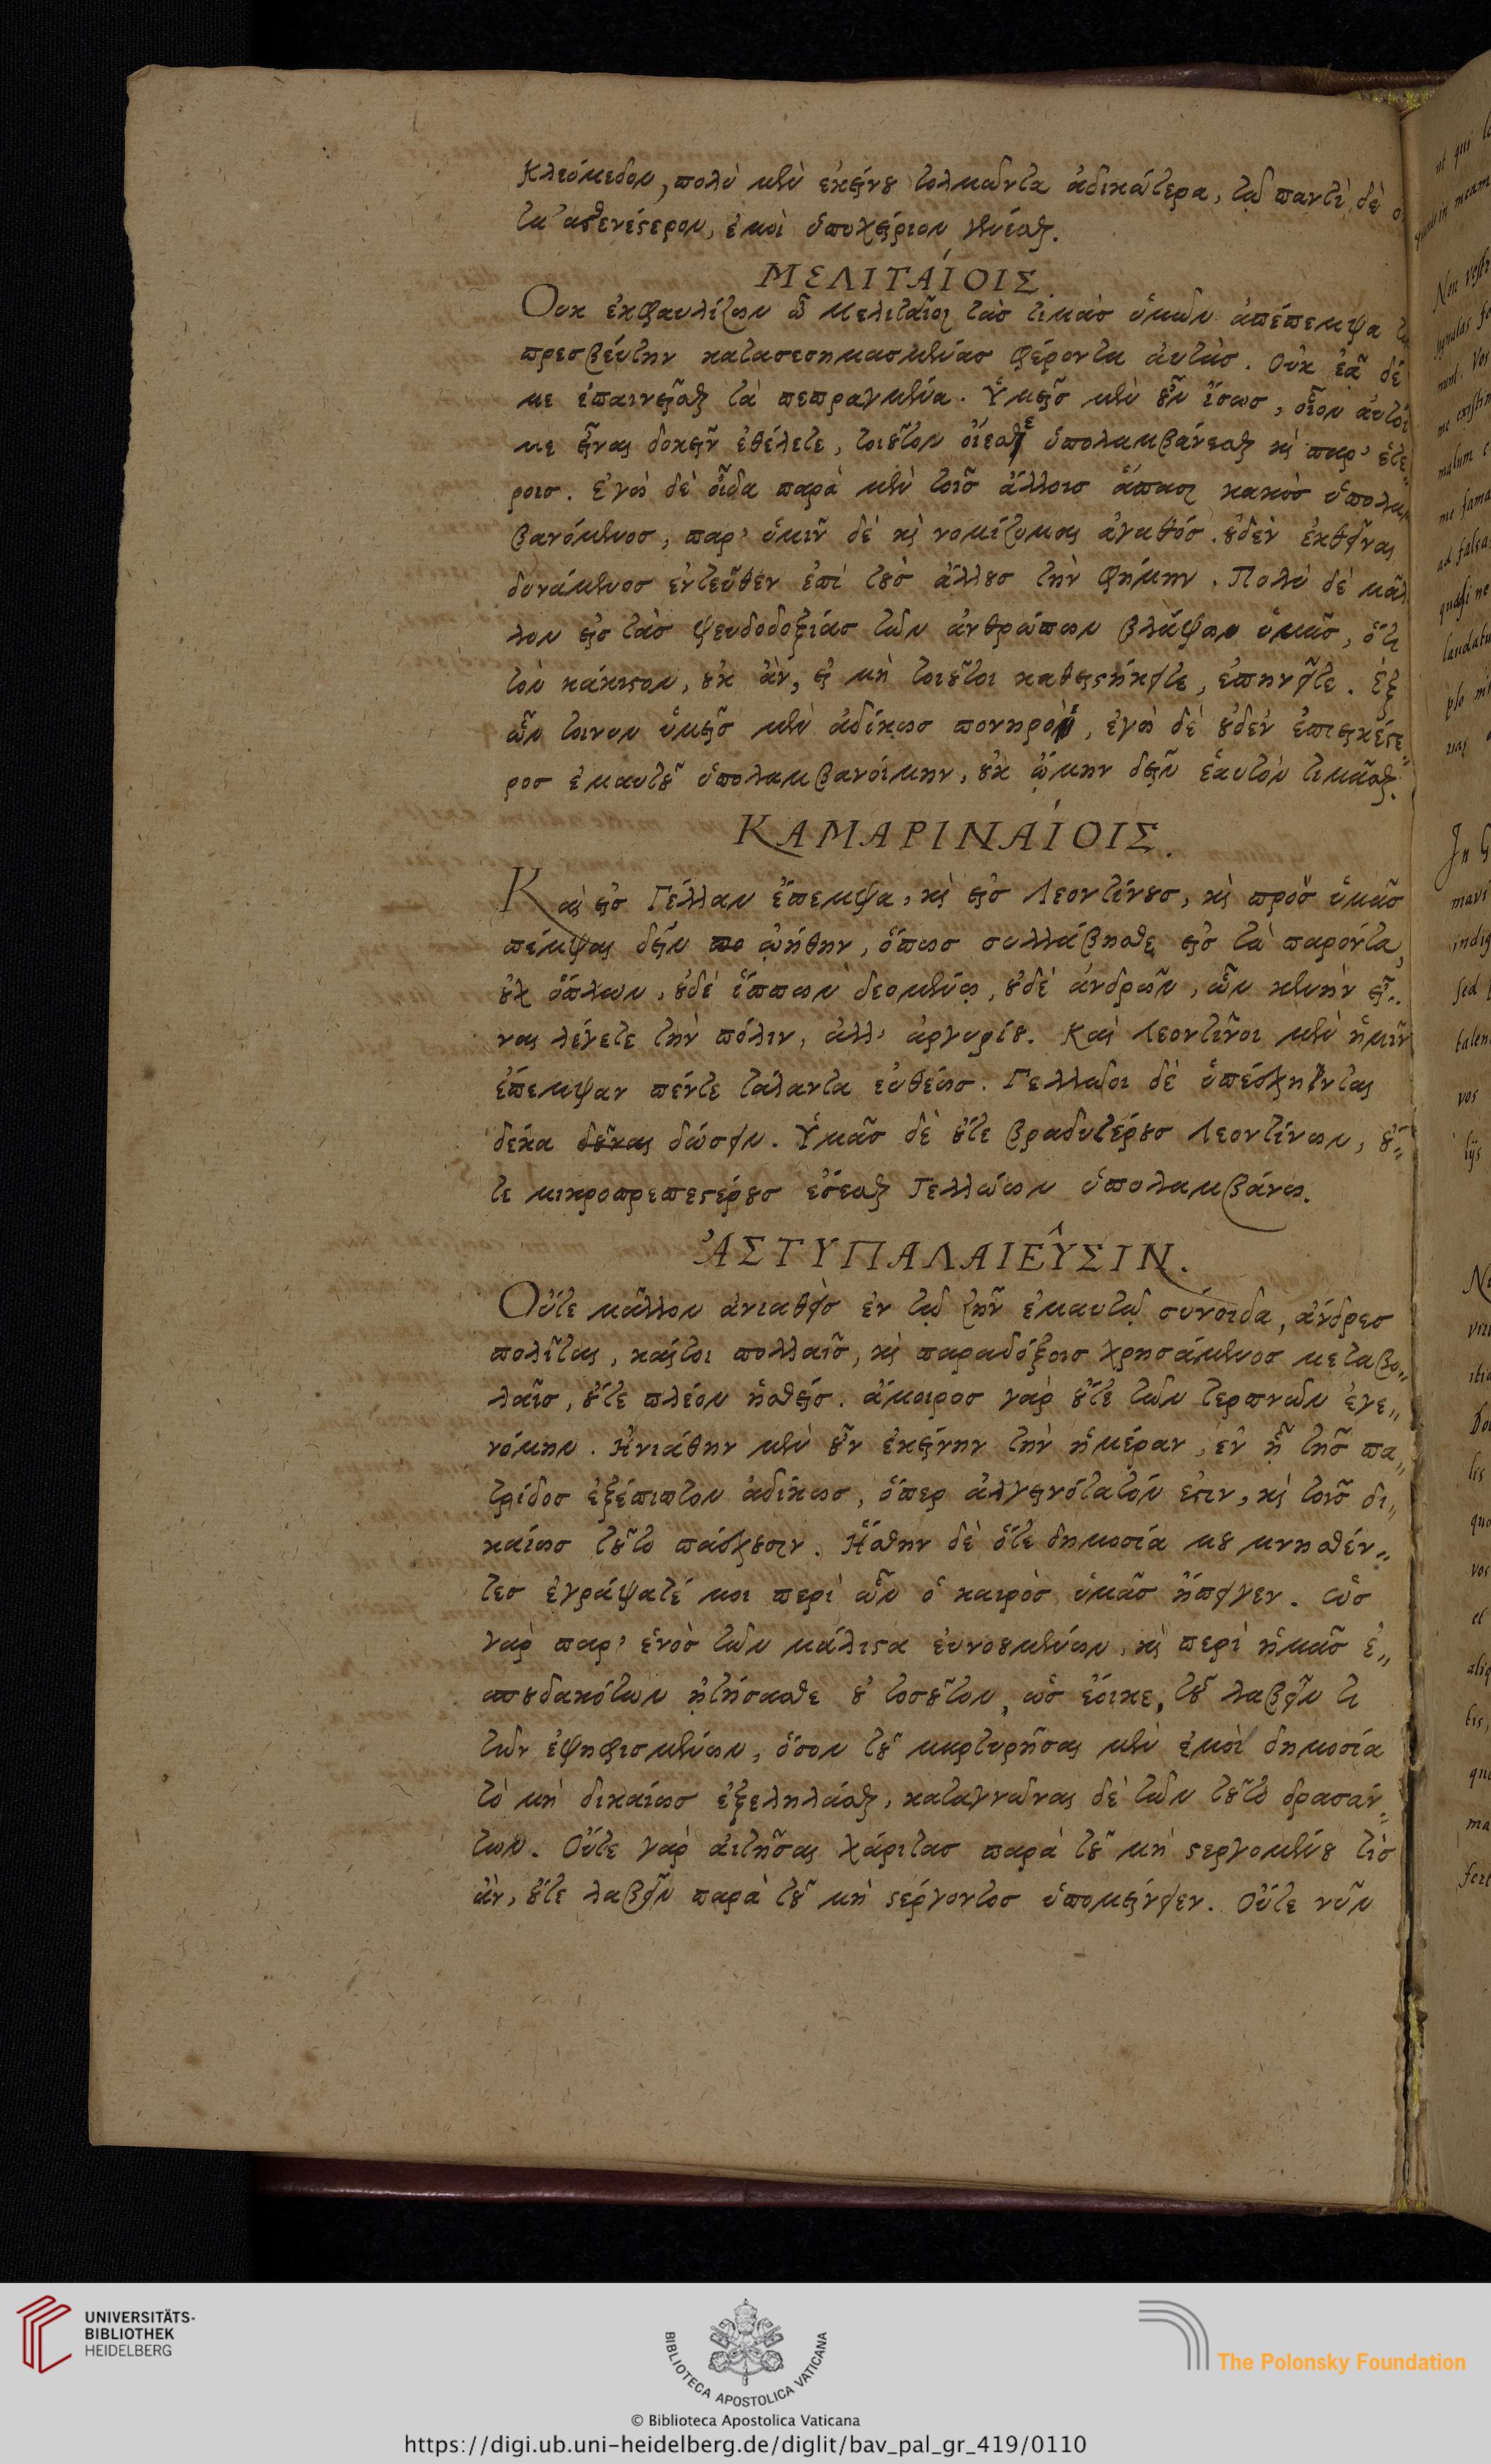 Κλεόμεδον, πολὺ μὲν ἐκείνου τολμῶντα ἀδικώτερα, τῷ παντὶ δὲ
τα ἀσθενέστερον, ἐμοὶ ὑποχείριον γενέσθαι.
ΜΕΛΙΤΑΊΟΙΣ.
Ουκ ἐκφαυλίζων ὦ Μελιταῖοι τὰς τιμὰς ὑμῶν ἀπέπεμψα
πρεσβέυτην κατασεσημασμένας φέροντα ἀυτὰς. Οὐκ ἐᾷ δέ
με ἐπαινεῖσθαι τὰ πεπραγμένα. Ὑμεῖς μὲν οὖν ἴσως, οἷον ἀυτοί
με εἶναι δοκεῖν ἐθέλετε, τοιοῦτον οἴεσθε ὑπολαμβάνεσθαι καὶ παρ' ἑτέ
ροις. Εγὼ δὲ οἶδα παρὰ μὲν τοῖς ἄλλοις ἅπασι κακὸς ὑπολαμ
βανόμενος, παρ' ὑμῖν δὲ καὶ νομίζομαι ἀγαθός. οὐδὲν ἐκθεῖναι
δυνάμενος ἐντεῦθεν ἐπὶ τοὺς ἄλλους τὴν φήμην. Πολὺ δὲ μᾶλ
λον εἰς τὰς ψευδοδοξίας τῶν ἀνθρώπων βλάψω ὑμᾶς, ὅτι
τὸν κάκιστον, οὐκ ἂν, εἰ μὴ τοιοῦτοι καθεστήκειτε, ἐπῃνεῖτε. Ἐξ
ὧν τοινυν ὑμεῖς μὲν ἀδίκως πονηροὶ, ἐγὼ δὲ οὐδὲν ἐπιεικέστε„
ρος ἐμαυτοῦ ὑπολαμβανοίμην, οὐκ ᾤμην δεῖν ἑαυτὸν τιμᾶσθαι.
ΚΑΜΑΡΙΝΑΊΟΙΣ.
Και εἰς Γέλλαν ἔπεμψα, καὶ εἰς Λεοντίνους, καὶ πρὸς ὑμᾶς
πέμψαι δεῖν ᾠήθην, ὅπως συλλάβησθε εἰς τὰ παρόντα,
οὐχ ὅπλων, οὐδὲ ἵππων δεομένῳ, οὐδὲ ἀνδρῶν, ὧν κενὴν εἶ„
ναι λέγετε τὴν πόλιν, ἀλλ' ἀργυρίου. Και Λεοντῖνοι μὲν ἡμῖν
ἔπεμψαν πέντε τάλαντα εὐθέως. Γελλῶοι δὲ ὑπέσχηνται
δέκα δώσειν. Ὑμᾶς δὲ οὔτε βραδυτέρους Λεοντίνων, οὔ„
τε μικροπρεπεστέρους ἔσεσθαι Γελλώων ὑπολαμβάνω.
ἈΣΤΥΠΑΛΑΙΕΥ͂ΣΙΝ.
Οὔτε μᾶλλον ἀνιαθεὶς ἐν τῷ ζῆν ἐμαυτῷ σύνοιδα, ἄνδρες
πολῖται, καίτοι πολλαῖς, καὶ παραδόξοις χρησάμενος μεταβο„
λαῖς, οὔτε πλέον ἡσθεὶς. ἄμοιρος γὰρ οὔτε τῶν τερπνῶν ἐγε„
νόμην. Ηνιάθην μὲν οὖν ἐκείνην τὴν ἡμέραν, ἐν ᾗ τῆς πα„
τρίδος ἐξέπιπτον ἀδίκως, ὅπερ ἀλγεινότατόν ἐστιν, καὶ τοῖς δι„
καίως τοῦτο πάσχουσιν. Ἥσθην δὲ ὅτε δημοσίᾳ μου μνησθέν„
τες ἐγράψατέ μοι περὶ ὧν ὁ καιρὸς ὑμᾶς ἤπειγεν. ὡς
γὰρ παρ' ἑνὸς τῶν μάλιστα ἐυνοουμένων, καὶ περὶ ἡμᾶς ἐ„
σπουδακότων ᾐτήσασθε οὐ τοσοῦτον, ὡς ἔοικε, τοῦ λαβεῖν τι
τῶν ἐψηφισμένων, ὅσον τοῦ μαρτυρῆσαι μὲν ἐμοὶ δημοσίᾳ
τὸ μὴ δικαίως ἐξεληλάσθαι, καταγνῶναι δὲ τῶν τοῦτο δρασάν„
των. Οὔτε γὰρ ἀιτῆσαι χάριτας παρὰ τοῦ μὴ στεργομένου τὶς
ἂν, οὔτε λαβεῖν παρὰ τοῦ μὴ στέργοντος ὑπομείνειεν. Οὔτε νῦν
UNIVERSITÄTS-
BIBLIOTHEK
HEIDELBERG
BIBLIOTECA APOSTOLICA VATICANA
The Polonsky Foundation
© Biblioteca Apostolica Vaticana
https://digi.ub.uni-heidelberg.de/diglit/bav_pal_gr_419/0110